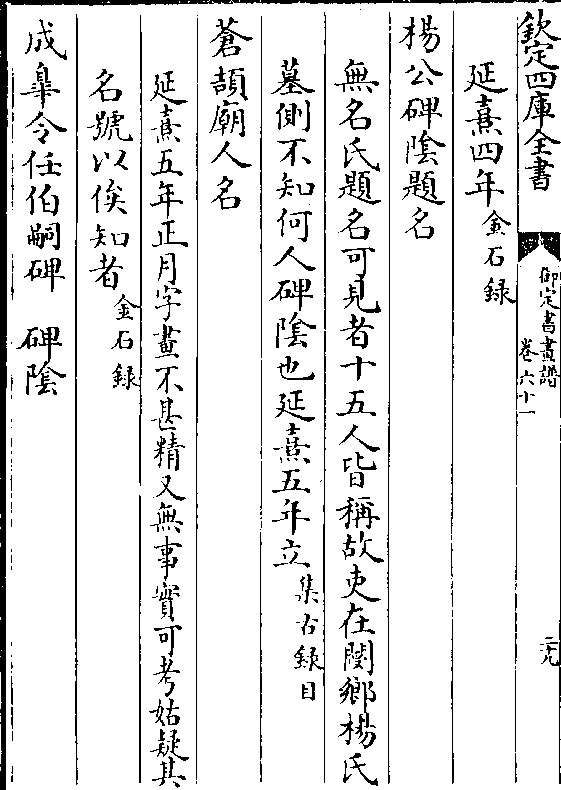 欽定四庫全書
御定書畫譜
卷六十一
二九
延熹四年金石録
楊公碑陰題名
無名氏題名可見者十五人皆稱故吏在閿鄉楊氏
墓側不知何人碑陰也延熹五年立集古録目
蒼頡廟人名
延熹五年正月字畫不甚精又無事實可考姑疑其
名號以俟知者金石録
成臯令任伯嗣碑 碑陰